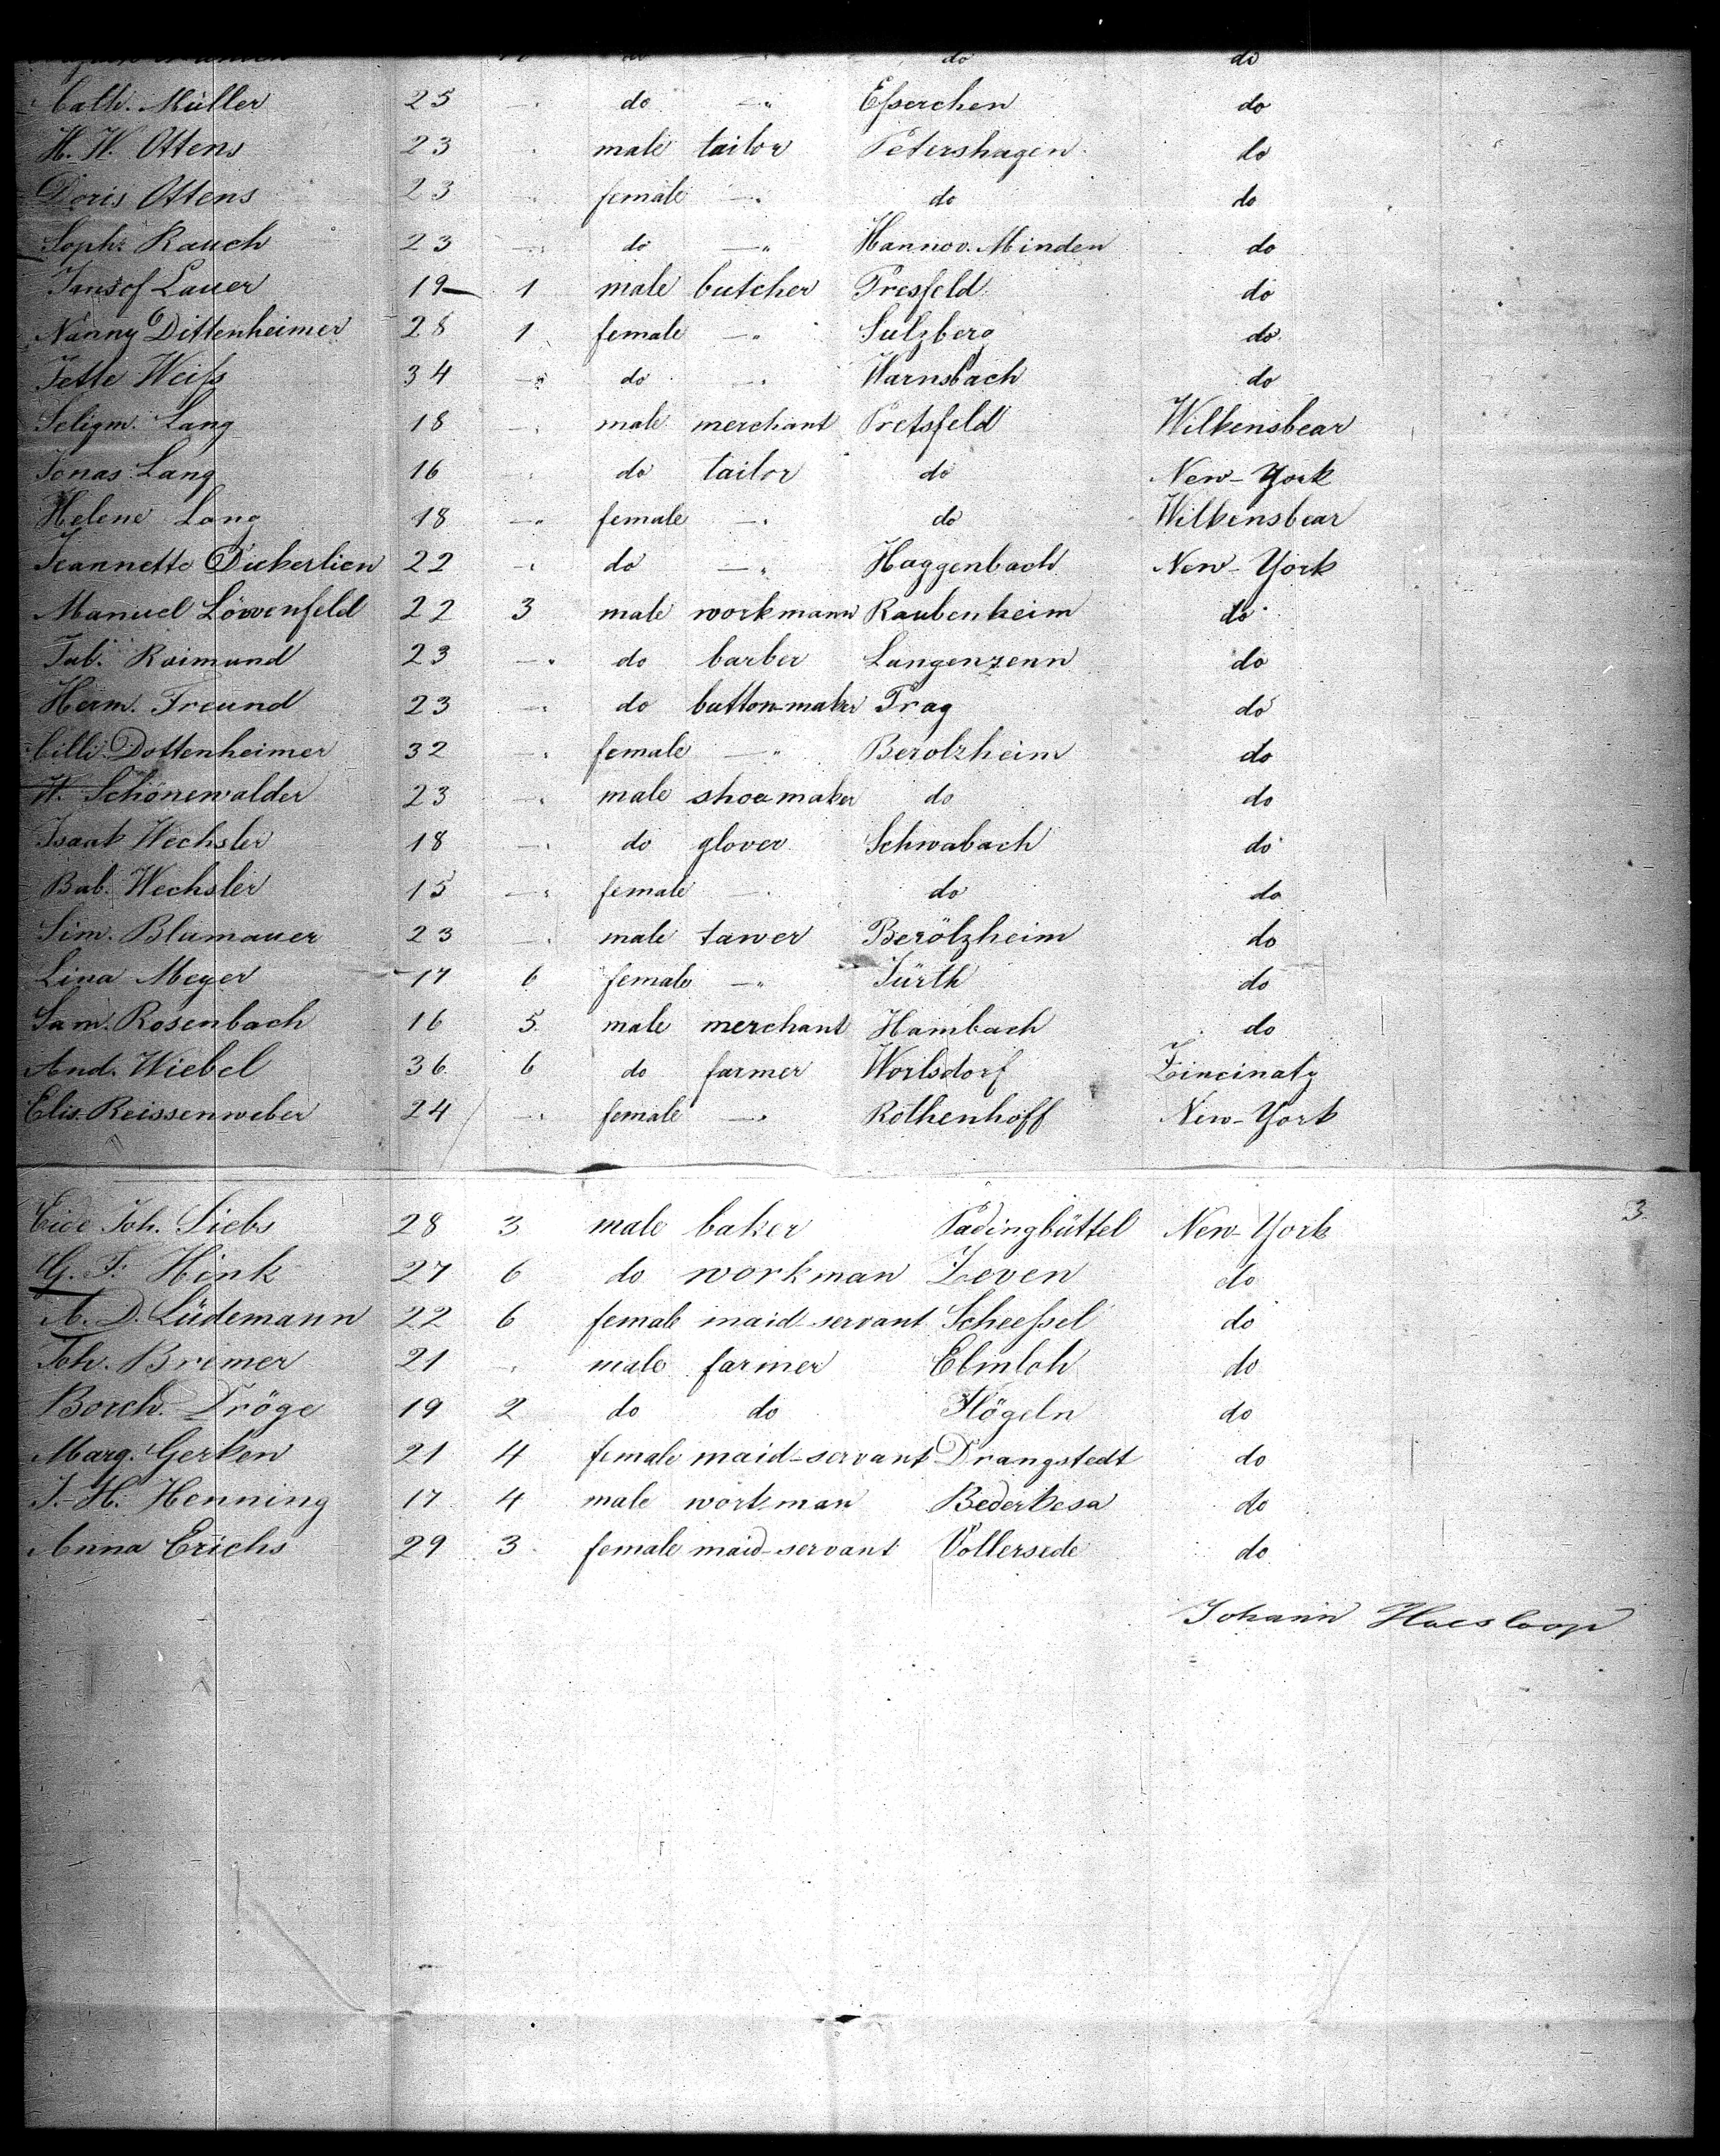 do do
Cath. Müller 25 —" do —" Esserchen do
H. W. Ottens 23 " male tailor Petershagen do
Doris Ottens 23 " female —" do do
Soph. Rauch 23 —" do —" Hannov. Minden do
Lauer 19 1 male butcher Presfeld do
Nanny Dittenheimer 28 1 female —" Sulzberg do
Jette Weiss 34 —" do —" Warnsbach do
Seligm. Lang 18 —" male merchant Pretsfeld Wilkensbear
Jonas Lang 16 " do tailor do New-York
Helene Lang 18 —" female —" do Wilkensbear
Jeannette Dickerlien 22 —" do —" Haggenbach New-York
Manuel Löwenfeld 22 3 male workmann Raubenheim do
Jab. Raimund 23 —" do barber Langenzenn do
Herm. Freund 23 —" do button-maker Prag do
Cilli Dottenheimer 32 —" female —" Berolzheim do
W. Schönewalder 23 —" male shoe-maker do do
Isaak Wechsler 18 —" do glover Schwabach do
Bab. Wechsler 15 —" female —" do do
Sim. Blumauer 23 —" male tawer Berölzheim do
Lina Meyer 17 6 female —" Fürth do
Sam. Rosenbach 16 5 male merchant Hambach do
And. Wiebel 36 6 do farmer Worlsdorf Zincinaty
Elis. Reissenweber 24 —" female —" Rothenhoff New-York
3.
Eide Joh. Siebs 28 3 male baker Padingbüttel New-York
G. F. Hink 27 6 do workman Zeven do
A. D. Lüdemann 22 6 female maid-servant Scheessel do
Joh. Bremer 21 " male farmer Elmloh do
Borch. Dröge 19 2 do do Flögeln do
Marg. Gerken 21 4 female maid-servant Drangstedt do
J. H. Henning 17 4 male workman Bederkesa do
Anna Erichs 29 3 female maid-servant Vollersede do
Johann Haesloop